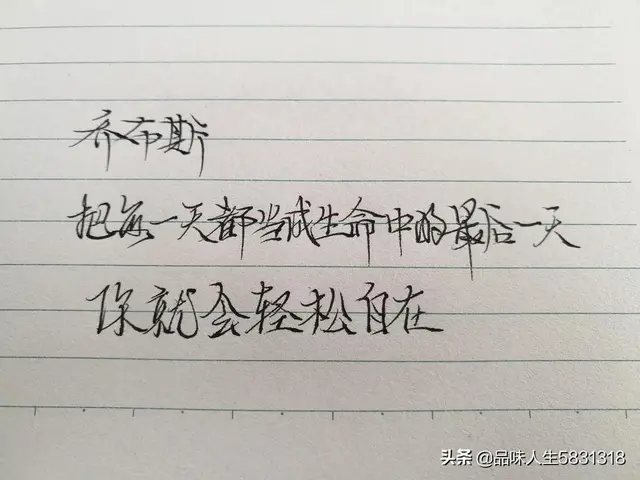 乔布斯
把每一天都当成生命中的最后一天
你就会轻松自在
头条 @品味人生5831318